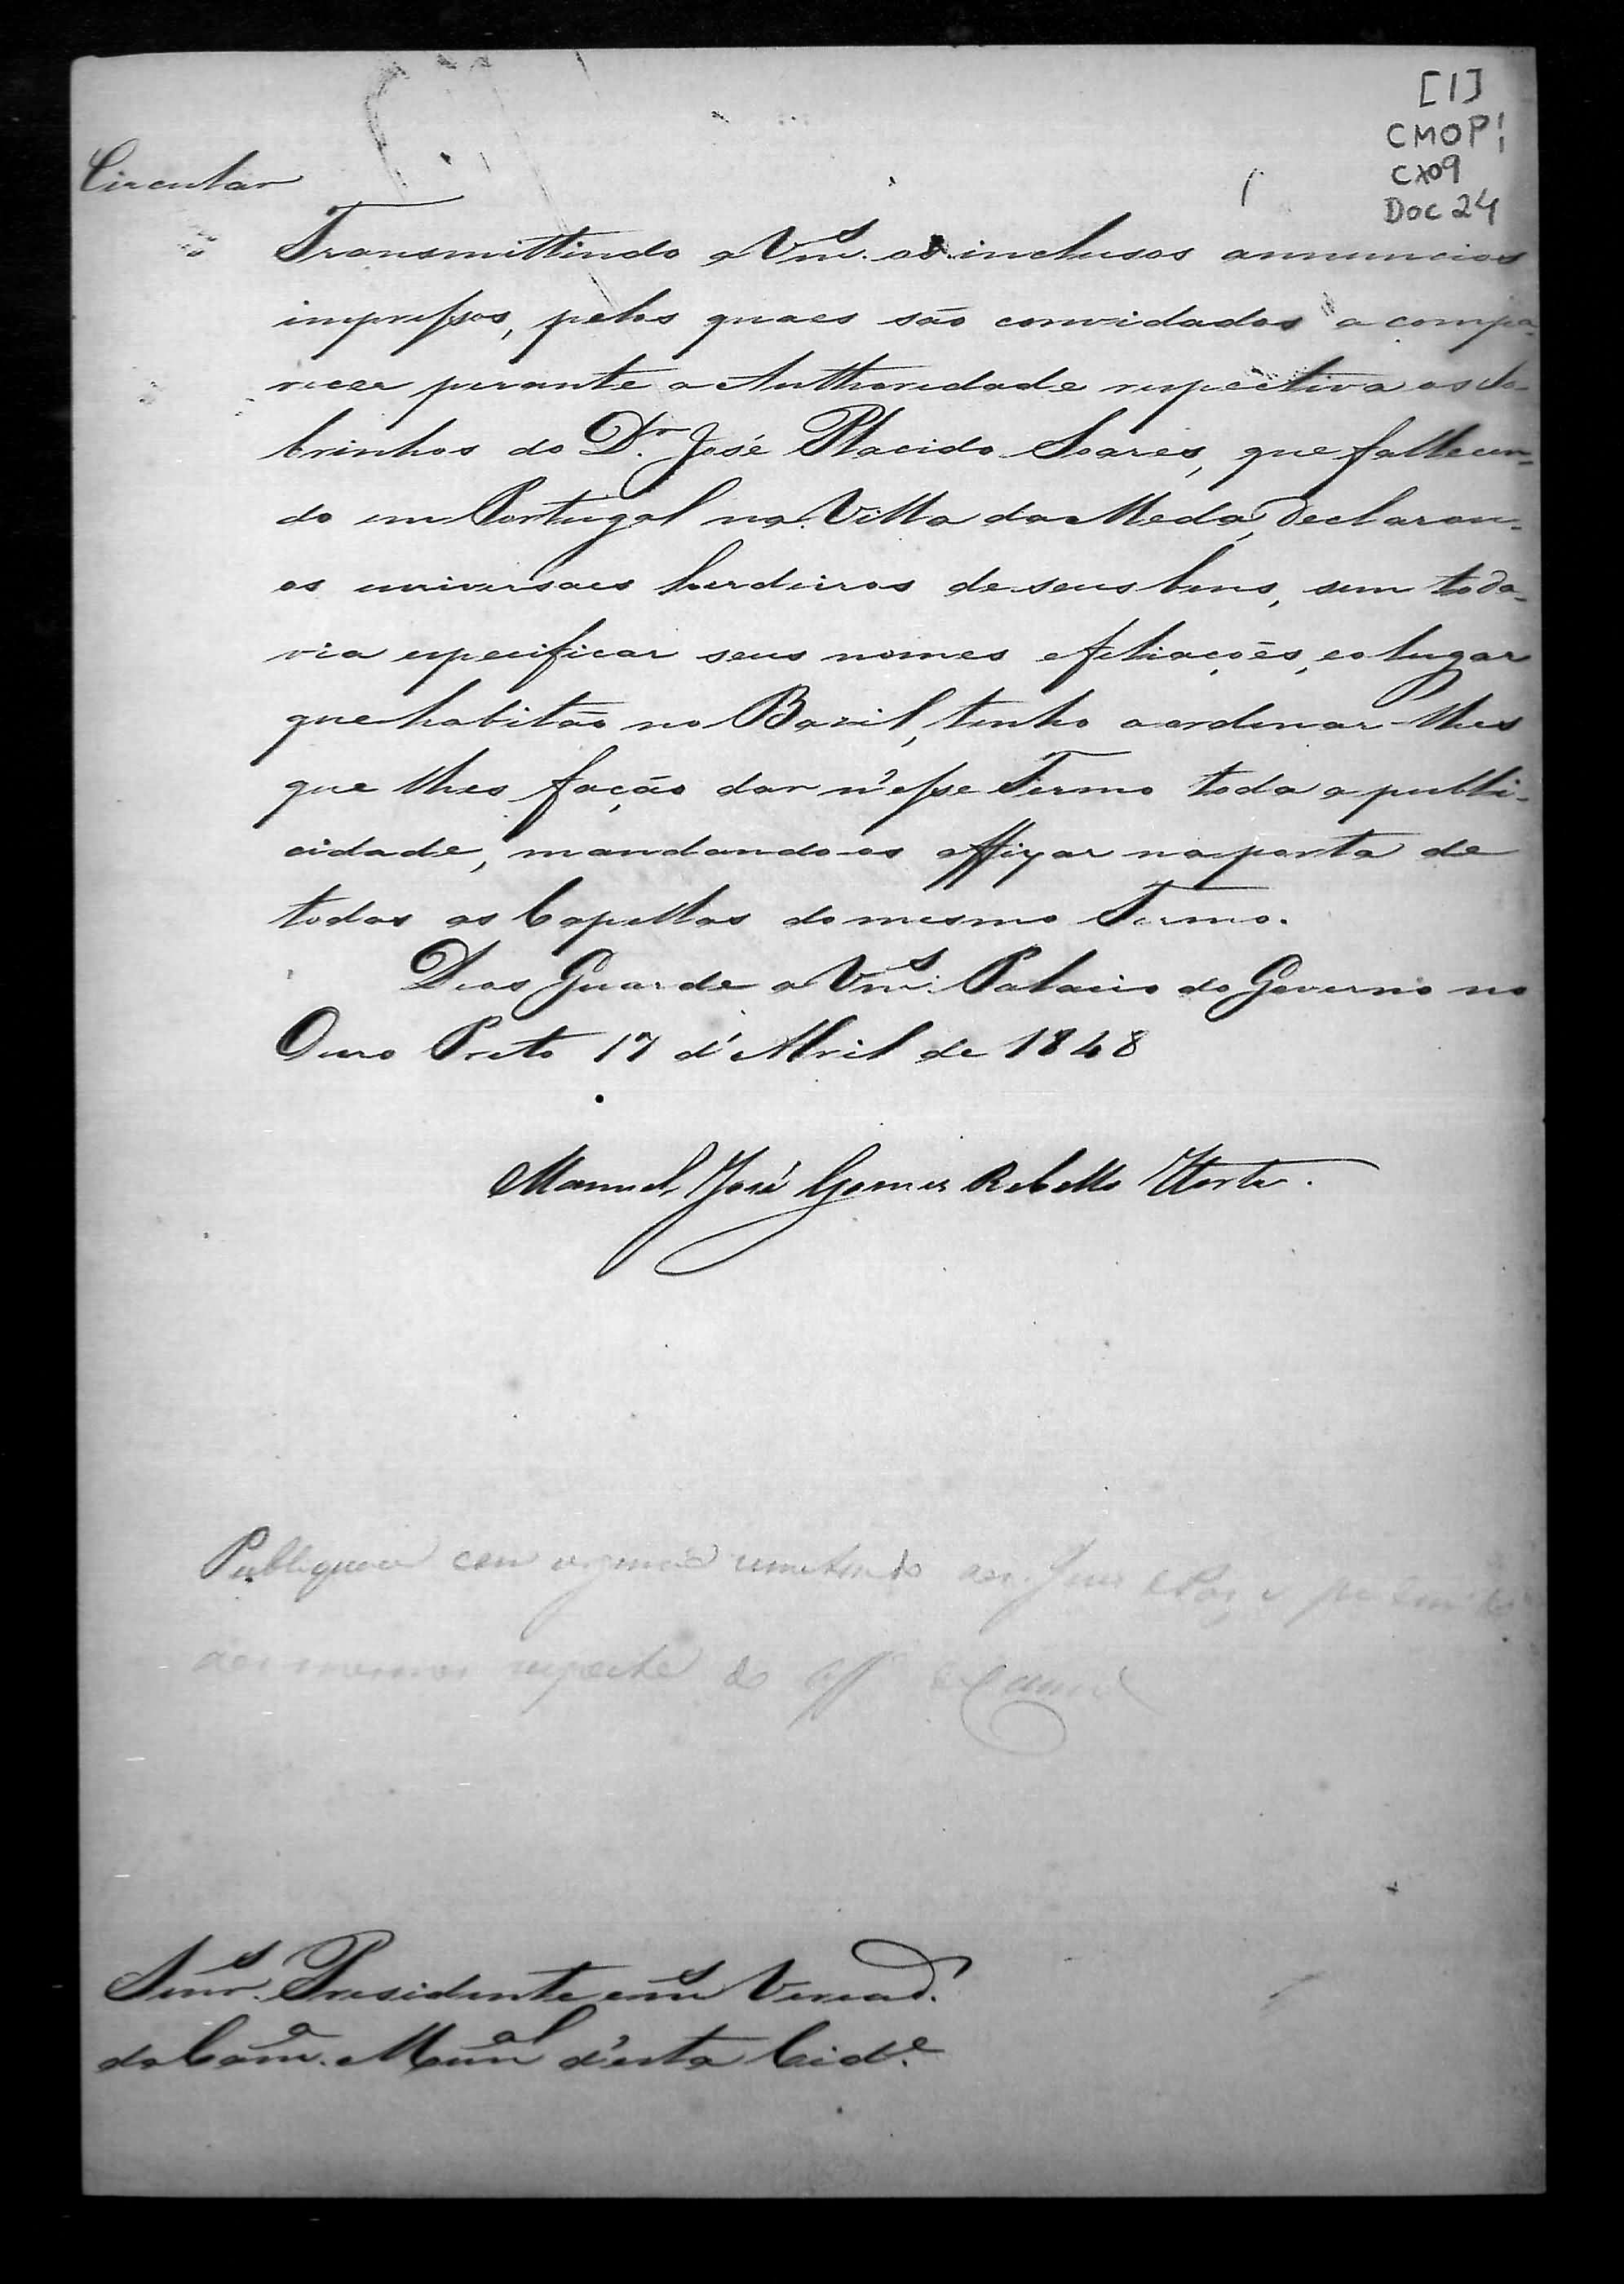 [1]
CMOP!
CX09
Doc 24
Circular
Transmittindo a Vm.s os inclusos annuncios
impressos, pelos quaes são convidados a compa-
recer perante a Authoridade respectiva os So-
brinhos do D.r José Placido Soares, que fallecen-
do em Portugal na Villa da Meda, declarou-
os universaes herdeiros de seus bens, sem toda-
via especificar seus nomes e filiações, e o lugar
que habitão no Brazil, tenho a ordenar-lhes
que lhes fação dar n'esse Termo toda a publi-
cidade, mandando-os affixar na porta de
todas as Capellas do mesmo Termo.
Deos Guarde a Vm.s Palacio do Governo no
Ouro Preto 17 d'Abril de 1848
Manuel José Gomes Rebello Horta.
Publique-se com urgencia remetendo aos Juizes de Paz e
aos mesmos respeito
Senr.s Presidente e m.s Veread.
da Cam.a Mun.al d'esta Cid.e